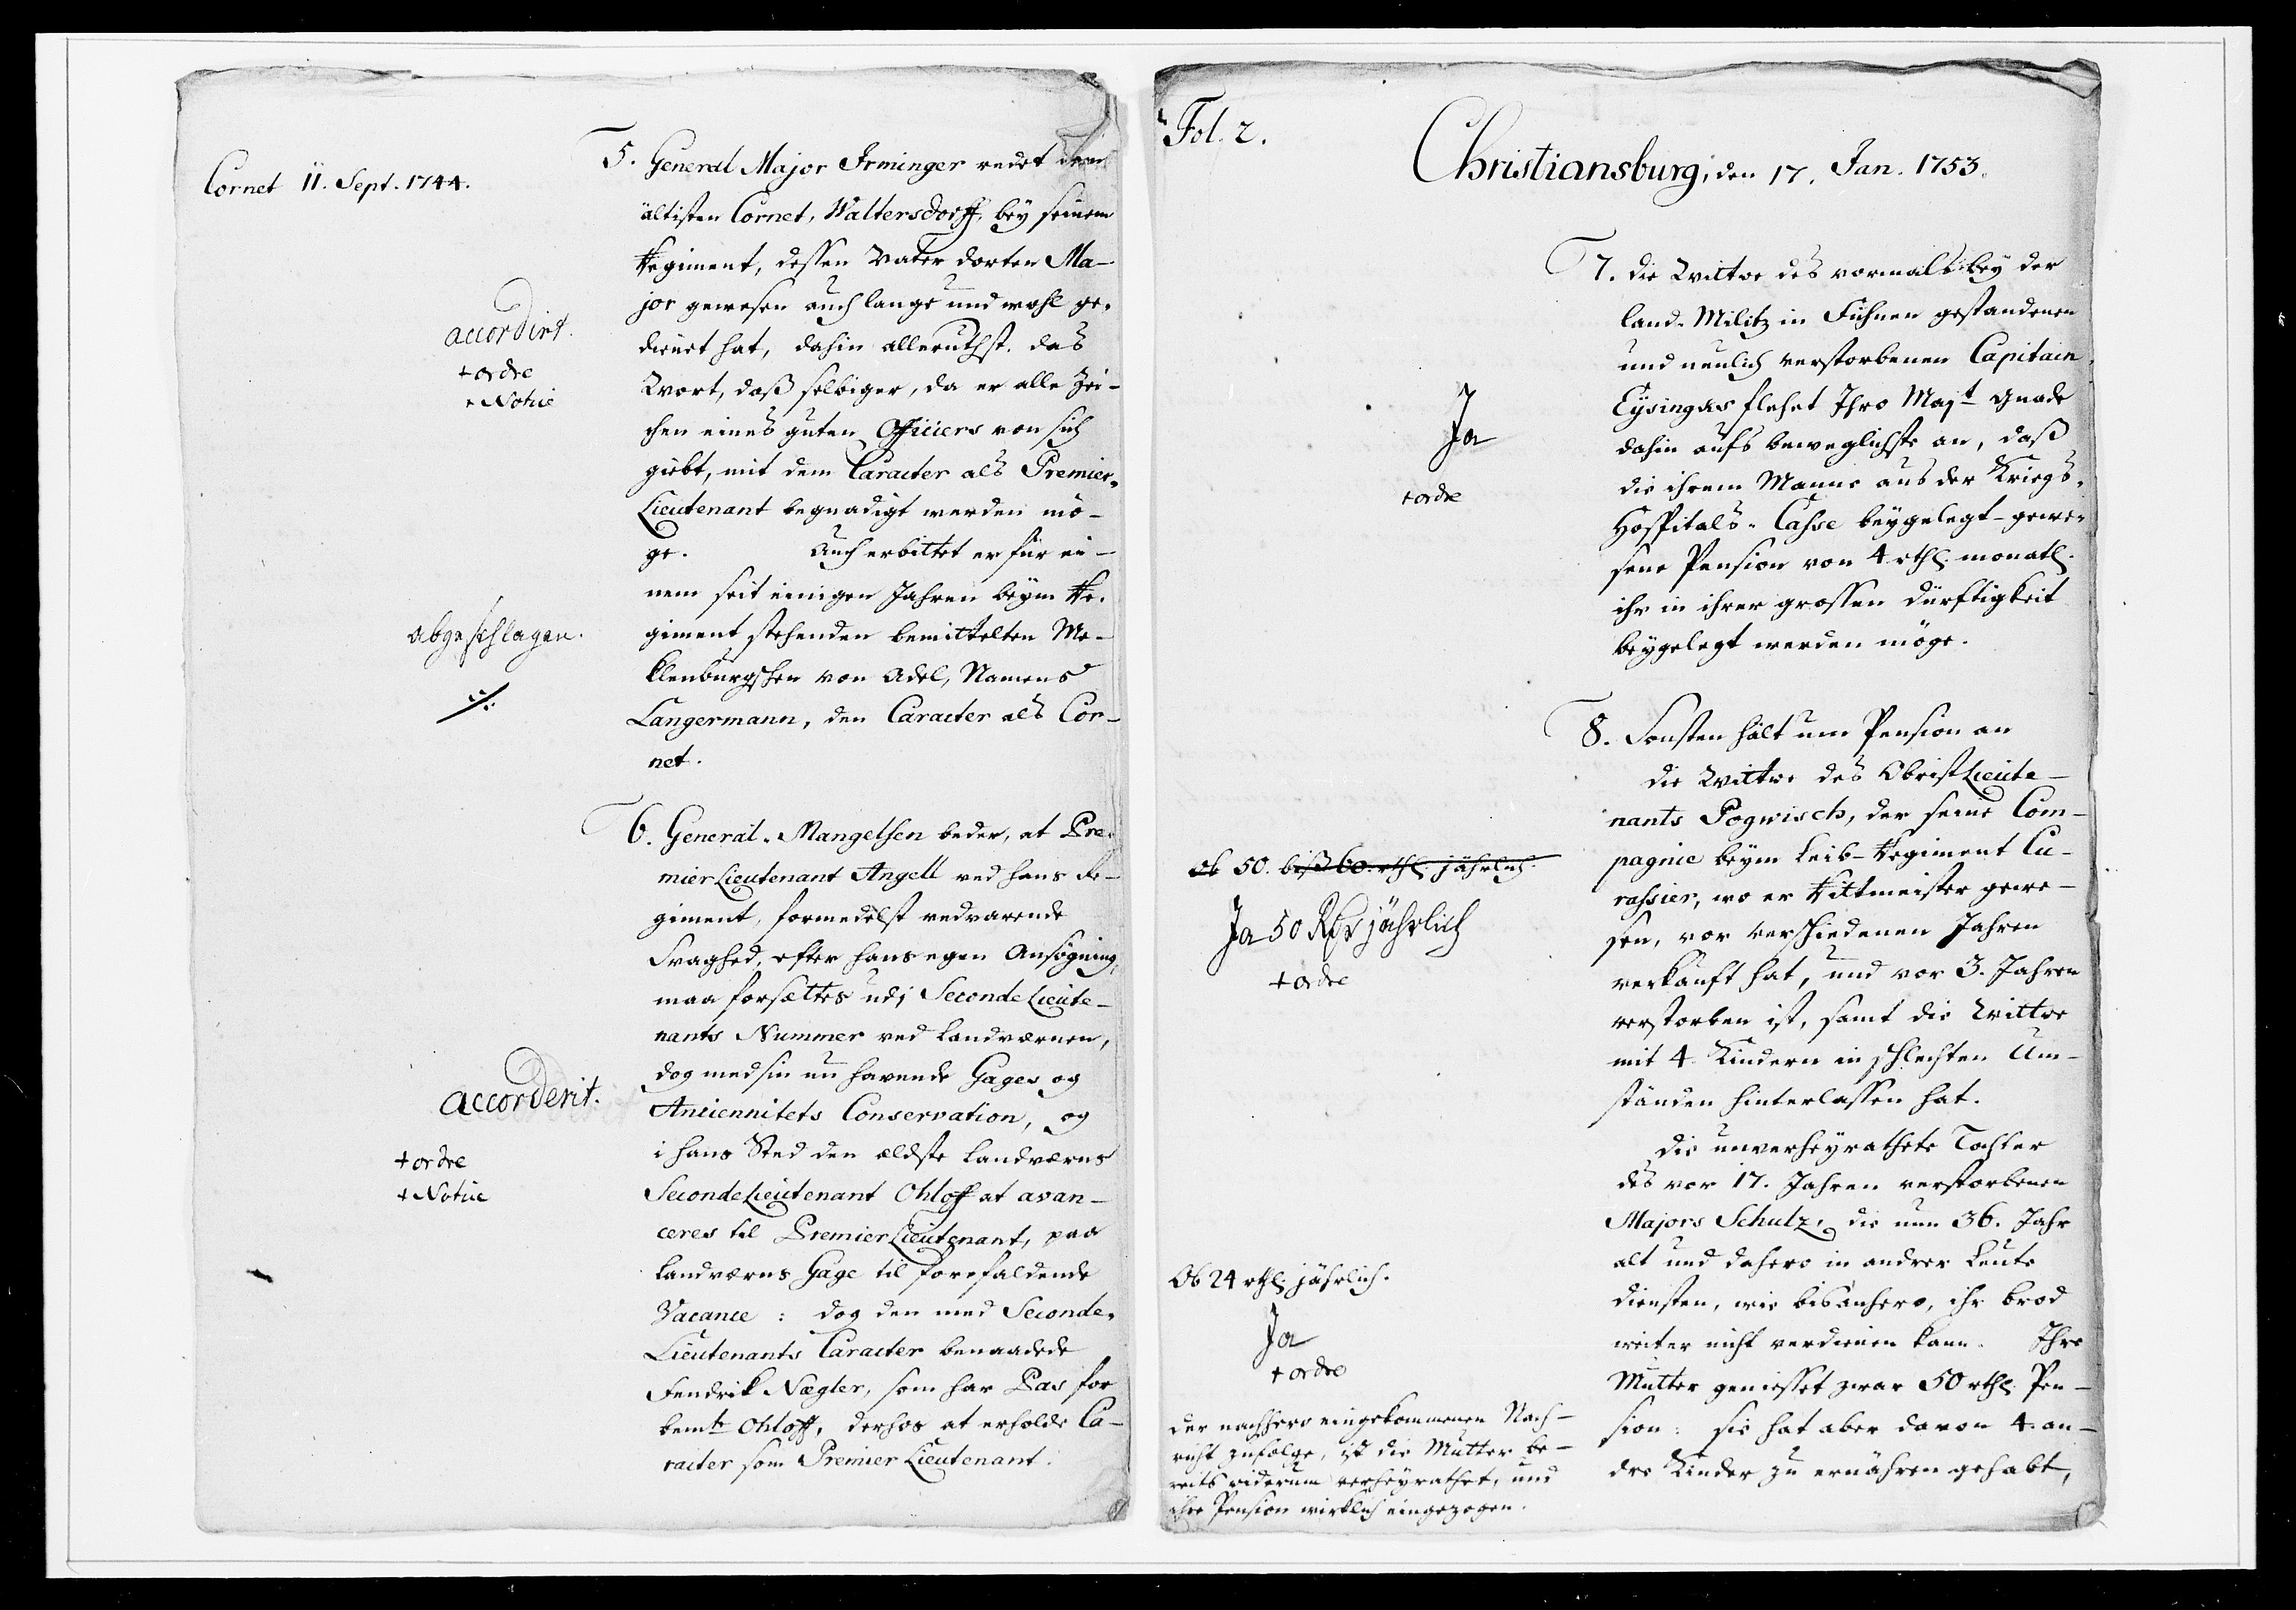 Cornet 11. Sept. 1744.
5. General Major Irminger redet dem
ältisten Cornet, Waltersdorff, bey seinem
Regiment, dessen Vater dorten Ma-
jor gewesen auch lange und wohl ge-
dienet hat, dahin alleruthst. das
Wort, daß selbiger, da er alle Zei-
chen eines guten Officiers von sich
giebt, mit dem Caracter als Premier-
Lieutenant begnadigt werden mö-
ge. Auch erbittet er für ei-
nem seit einigen Jahren beym Re-
giment stehenden bemittelten Me-
klenburgschen von Adel, Namens
Langermann, den Caracter als Cor-
net.
accordirt.
+ ordre
+ Notice
abgeschlagen.
6. General-Mangelsen beder, at Pre-
mier Lieutenant Angell ved hans Re-
giment, formedelst vedvarende
Svaghed, efter hans egen Ansøgning,
maa forsættes udi Seconde Lieute-
nants Nummer ved Landværnen,
dog med sin nu havende Gages og
Anciennitets Conservation, og
i hans Sted den ældste Landværns
Seconde Lieutenant Ohloff at avan-
ceres til Premier Lieutenant, paa
Landværns Gage til forefaldende
Vacance: dog den med Seconde-
Lieutenants Caracter benaadede
Fendrik Nægler, som har Pas for
bemte Ohloff, derhos at erholde Ca-
racter som Premier Lieutenant.
accorderit.
+ ordre
+ Notice
Fol. 2.
Christiansburg, den 17. Jan. 1753.
7. Die Wittwe des vormals bey der
Land-Militz in Fühnen gestandenen
und neulich verstorbenen Capitain
Eysingas flehet Ihro Majt Gnade
dahin aufs beweglichste an, daß
die ihrem Manne aus der Kriegs-
Hospitals-Casse beygelegt-gewe-
sene Pension von 4 rthl. monatl.
ihr in ihrer grossen Dürftigkeit
beygelegt werden möge.
Ja
+ ordre
8. Sonsten hält um Pension an
die Wittwe des Obrist Lieute-
nants Pogwisch, der seine Com-
pagnie beym Leib-Regiment Cu-
rassier, wo er Rittmeister gewe-
sen, vor verschiedenen Jahren
verkauft hat, und vor 3. Jahren
verstorben ist, samt die Wittwe
mit 4 Kindern in schlechten Um-
ständen hinterlassen hat.
ob 50. biß 60. rthl. jährlich.
Ja 50 Rdr jährlich
+ ordre
Die unverheyrathete Tochter
des vor 17. Jahren verstorbenen
Majors Schulz, die nun 36. Jahr
alt und dahero in andrer Leute
Diensten, wie bisanhero, ihr Brod
weiter nicht verdienen kann. Ihre
Mutter geniesset zwar 50 rthl. Pen-
sion: sie hat aber davon 4. an-
dre Kinder zu ernähren gehabt,
Ob 24 rthl. jährlich.
Ja
+ ordre
Der nachhero eingekommenen Nach-
richt zufolge, ist die Mutter be-
reits widerum verheyrathet, und
ihre Pension wirklich eingezogen.